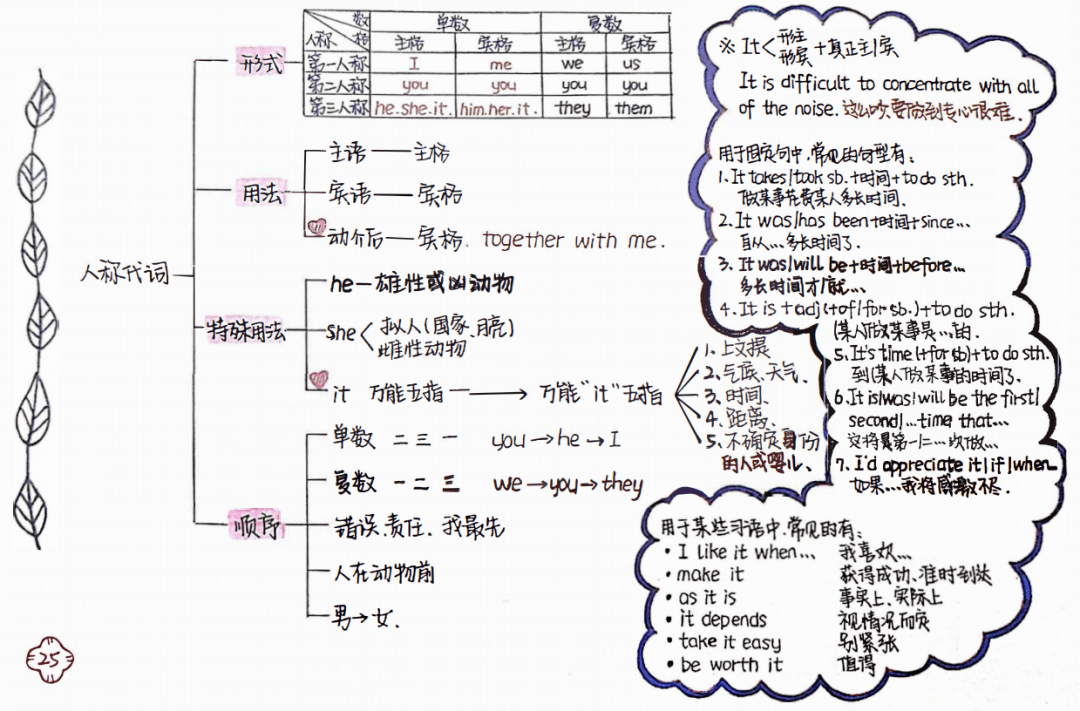 人称代词
形式
数
格
人称
单数
复数
主格 宾格 主格 宾格
第一人称 I me we us
第二人称 you you you you
第三人称 he.she.it. him.her.it. they them
用法
主语——主格
宾语——宾格
动介后——宾格. together with me.
特殊用法
he—雄性或凶动物
she< 拟人(国家、月亮)
雌性动物
it 万能五指 → 万能"it"五指
1. 上文提
2. 气候、天气、
3. 时间、
4. 距离、
5. 不确定身份
的人或婴儿、
顺序
单数 二三一 you→he→I
复数 一二三 we→you→they
错误.责任.我最先
人在动物前
男→女.
※ It< 形主
形宾 +真正主/宾
It is difficult to concentrate with all
of the noise. 这么吵,要做到专心很难.
用于固定句中,常见的句型有:
1. It takes/took sb.+时间+to do sth.
做某事花费某人多长时间.
2. It was/has been+时间+since...
自从...多长时间了.
3. It was/will be+时间+before...
多长时间才/就...
4. It is+adj(+of/for sb.)+to do sth.
(某人)做某事是...的.
5. It's time(+for sb)+to do sth.
到(某人)做某事的时间了.
6. It is/was/will be the first/
second/...time that...
这将是第一/二...次做...
7. I'd appreciate it/if/when
如果...我将感激不尽.
用于某些习语中,常见的有:
• I like it when... 我喜欢...
• make it 获得成功、准时到达
• as it is 事实上、实际上
• it depends 视情况而定
• take it easy 别紧张
• be worth it 值得
25